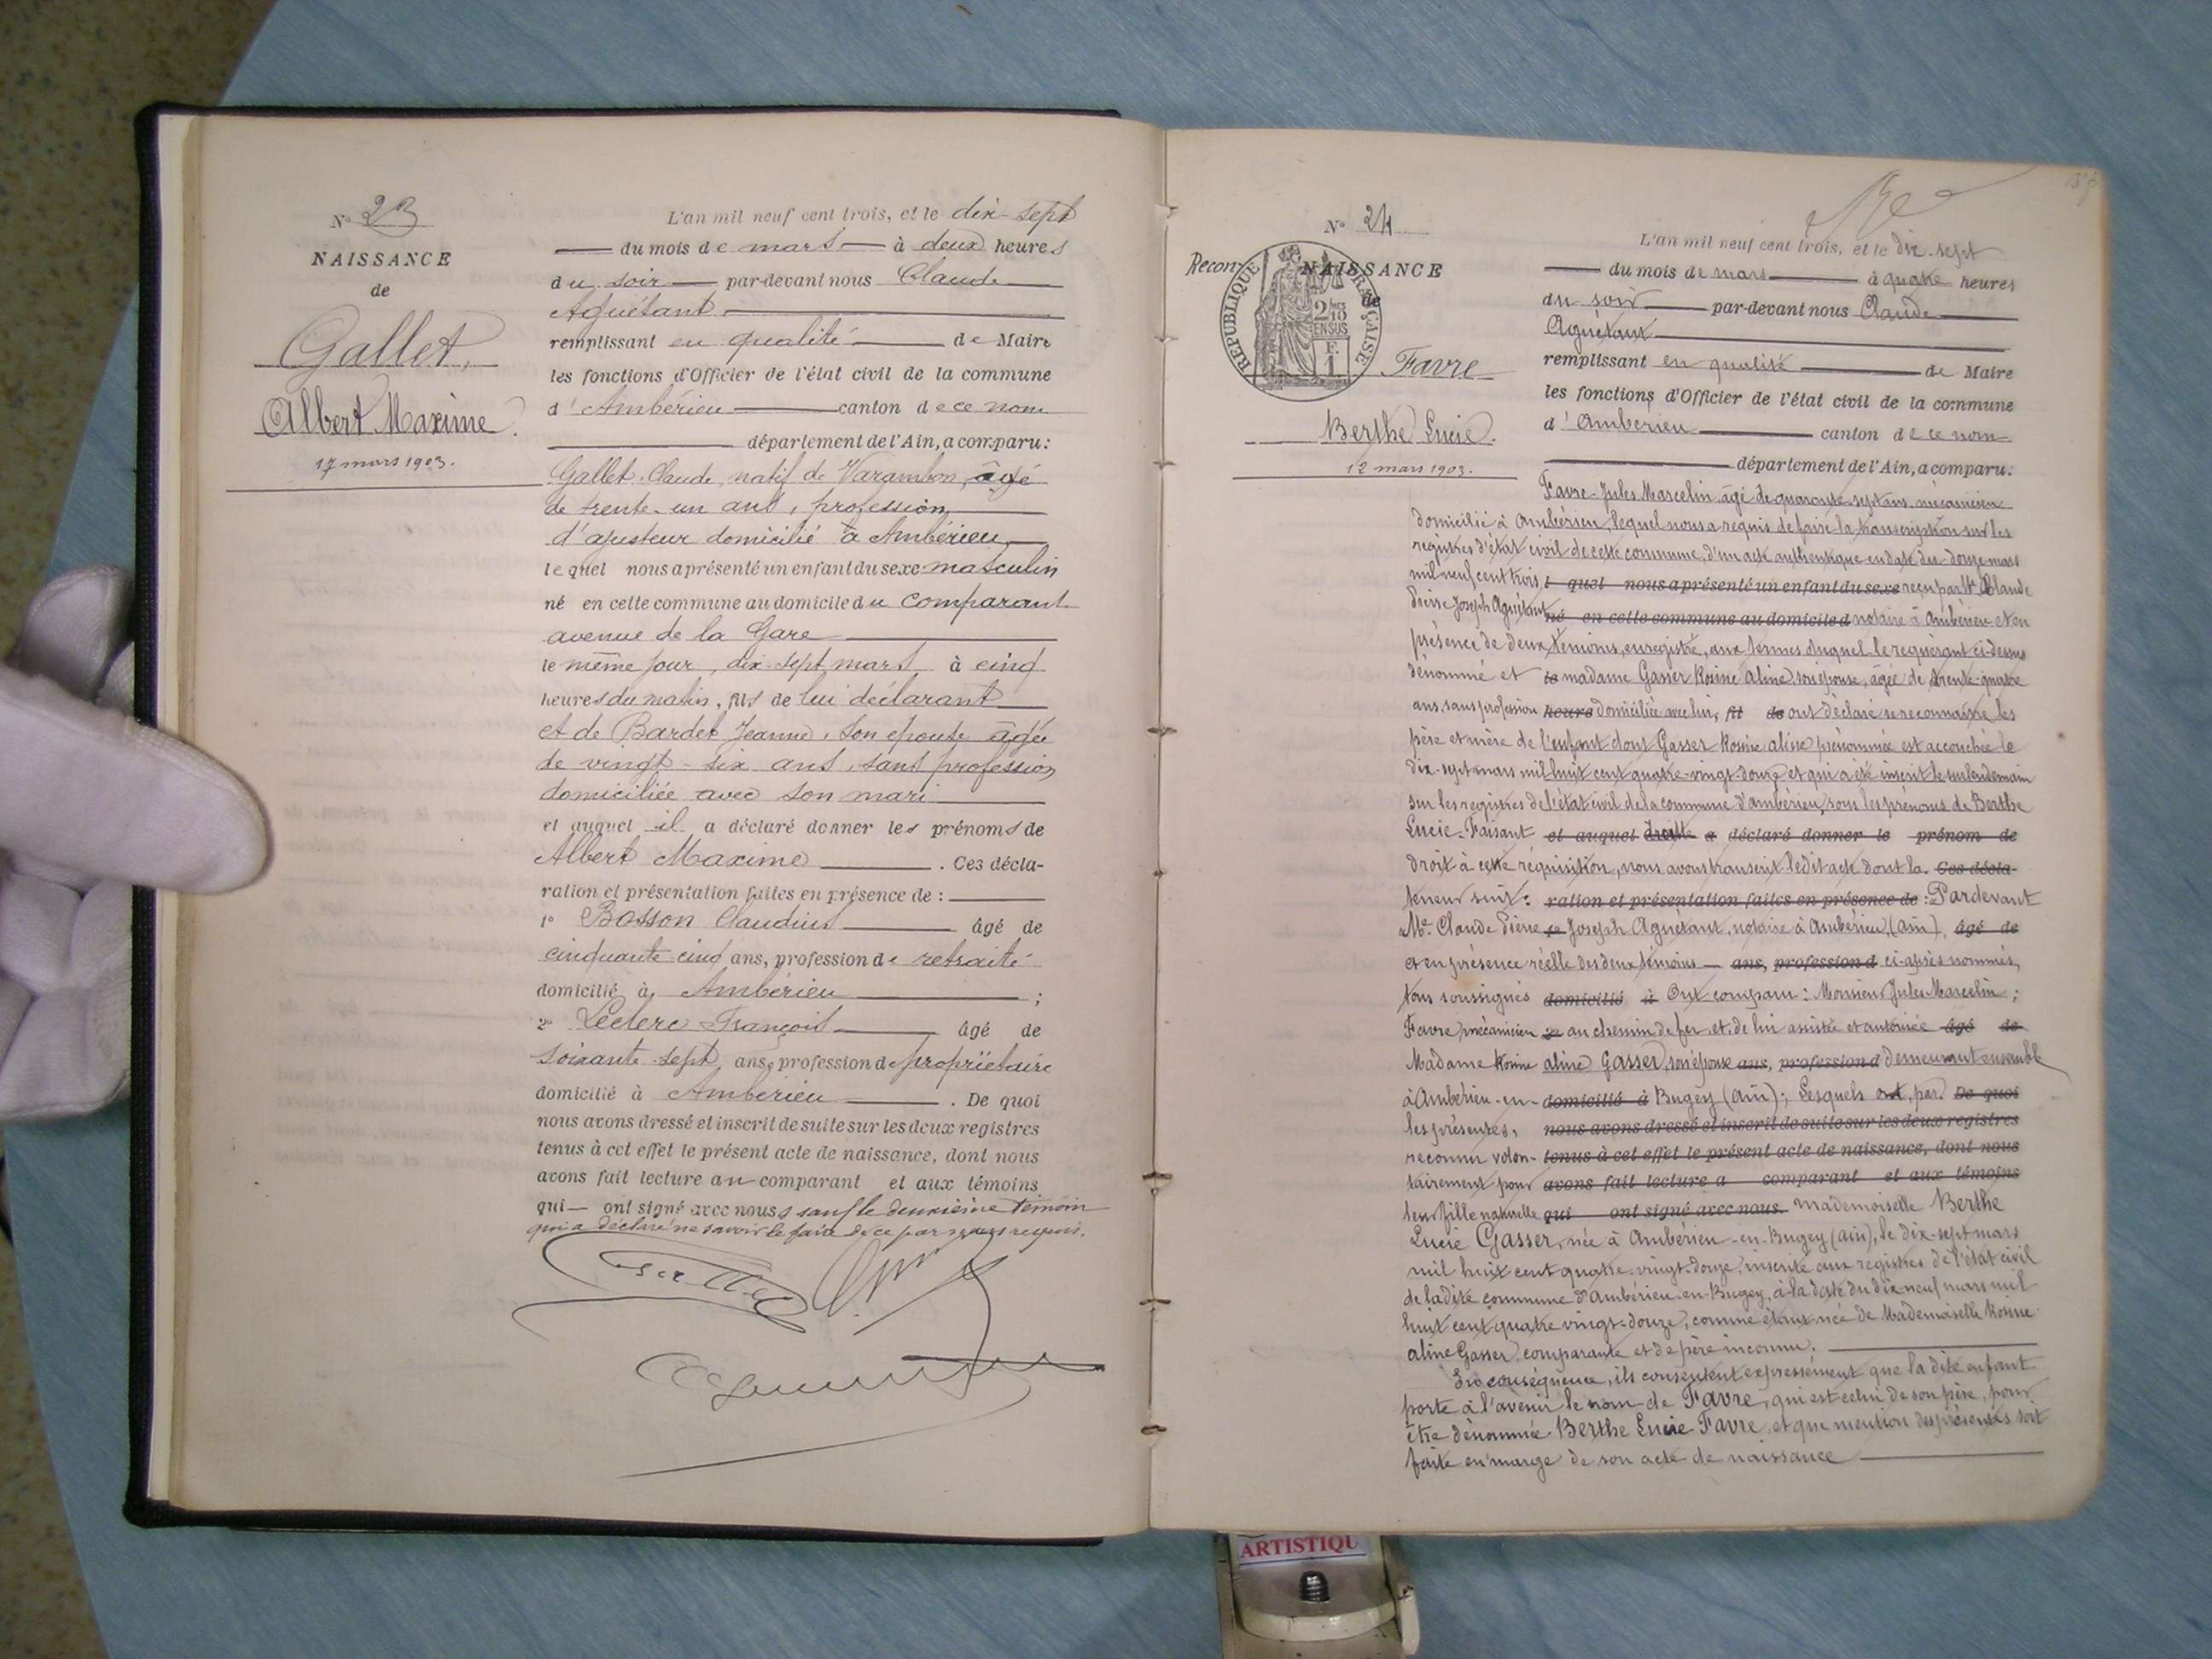 N° 23
NAISSANCE
de
Gallet,
Albert Maxime.
17 mars 1903.
L'an mil neuf cent trois, et le dix-sept
du mois de mars à deux heures
du soir par-devant nous Claude
Aguétant
remplissant en qualité de Maire
les fonctions d'Officier de l'état civil de la commune
d'Ambérieu canton de ce nom
département de l'Ain, a comparu:
Gallet Claude, natif de Varambon, âgé
de trente-un ans, profession
d'ajusteur domicilié à Ambérieu,
lequel nous a présenté un enfant du sexe masculin
né en cette commune au domicile du comparant
avenue de la Gare
le même jour, dix-sept mars à cinq
heures du matin, fils de lui déclarant
et de Bardet Jeanne, son épouse âgée
de vingt-six ans, sans profession
domiciliée avec son mari
et auquel il a déclaré donner les prénoms de
Albert Maxime. Ces décla-
ration et présentation faites en présence de :
1° Bosson Claudius âgé de
cinquante cinq ans, profession de retraité
domicilié à Ambérieu ;
2° Leclerc François âgé de
soixante-sept ans, profession de propriétaire
domicilié à Ambérieu. De quoi
nous avons dressé et inscrit de suite sur les deux registres
tenus à cet effet le présent acte de naissance, dont nous
avons fait lecture au comparant et aux témoins
qui ont signé avec nous sauf le deuxième témoin
qui a déclaré ne savoir le faire de ce par nous requis.
N° 24
Recon NAISSANCE
de
RÉPUBLIQUE FRANÇAISE
2/10 EN SUS
F. 1
Favre
Berthe Lucie.
12 mars 1903.
L'an mil neuf cent trois, et le dix-sept
du mois de mars à quatre heures
du soir par-devant nous Claude
Aguétant
remplissant en qualité de Maire
les fonctions d'Officier de l'état civil de la commune
d'Ambérieu canton de ce nom
département de l'Ain, a comparu:
Favre Jules Marcelin, âgé de quarante-sept ans, mécanicien
domicilié à Ambérieu, lequel nous a requis de faire la transcription sur les
registres d'état civil de cette commune, d'un acte authentique en date du douze mars
mil neuf cent trois, l quel nous a présenté un enfant du sexe reçu par Me Claude
Pierre Joseph Aguétant né en cette commune au domicile d notaire à Ambérieu et en
présence de deux témoins, enregistré, aux termes duquel le requérant ci-dessus
dénommé et le madame Gasser Rosine Aline, son épouse, âgée de trente-quatre
ans, sans profession heures domiciliée avec lui, fil de ont déclaré se reconnaître les
père et mère de l'enfant dont Gasser Rosine Aline prénommée est accouchée le
dix-sept mars mil huit cent quatre-vingt-douze et qui a été inscrit le surlendemain
sur les registres de l'état civil de la commune d'Ambérieu, sous les prénoms de Berthe
Lucie. Faisant et auquel a déclaré donner le prénom de
droit à cette réquisition, nous avons transcrit ledit acte dont la. Ces décla-
teneur suit : ration et présentation faites en présence de : Pardevant
Me Claude Pierre Joseph Aguétant, notaire à Ambérieu (Ain), âgé de
et en présence réelle des deux témoins ans, profession d ci-après nommés,
tous soussignés domicilié à Ont comparu : Monsieur Jules Marcelin ;
Favre, mécanicien 2° au chemin de fer, et, de lui assistée et autorisée âgé de
Madame Rosine Aline Gasser, son épouse ans, profession d demeurant ensemble
à Ambérieu-en- domicilié à Bugey (Ain) ; Lesquels ont, par De quoi
les présentes, nous avons dressé et inscrit de suite sur les deux registres
reconnu volon- tenus à cet effet le présent acte de naissance, dont nous
tairement pour avons fait lecture a comparant et aux témoins
leur fille naturelle qui ont signé avec nous. Mademoiselle Berthe
Lucie Gasser, née à Ambérieu-en-Bugey (Ain), le dix-sept mars
mil huit cent quatre-vingt-douze, inscrite aux registres de l'état civil
de ladite commune d'Ambérieu-en-Bugey, à la date du dix-neuf mars mil
huit cent quatre vingt-douze, comme étant née de Mademoiselle Rosine
Aline Gasser, comparante et de père inconnu.
En conséquence, ils consentent expressément que la dite enfant
porte à l'avenir le nom de Favre, qui est celui de son père, pour
être dénommée Berthe Lucie Favre, et que mention des présentes soit
faite en marge de son acte de naissance
ARTISTIQU